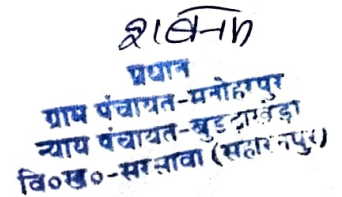 शबनम
प्रधान
ग्राम पंचायत-मनोहरपुर
न्याय पंचायत-बुड्ढाखेड़ा
वि०ख०-सरसावा (सहारनपुर)